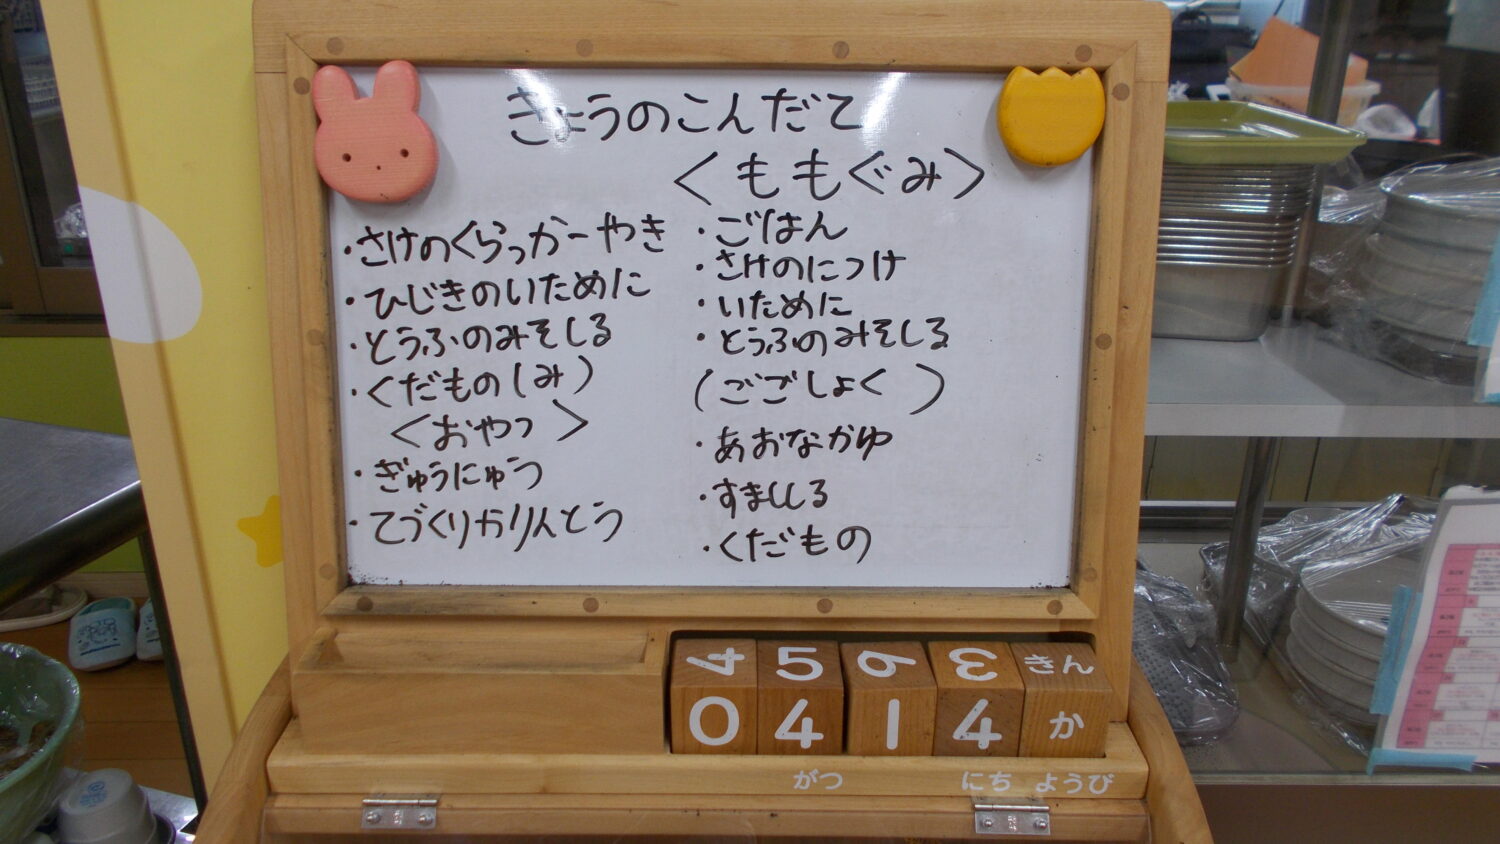 きょうのこんだて
・さけのくらっかーやき
・ひじきのいために
・とうふのみそしる
・くだもの(み)
<おやつ>
・ぎゅうにゅう
・てづくりかりんとう
<ももぐみ>
・ごはん
・さけのにつけ
・いために
・とうふのみそしる
(ごごしょく)
・あおなかゆ
・すましじる
・くだもの
4 5 6 3 きん
0 4 1 4 か
がつ にち ようび